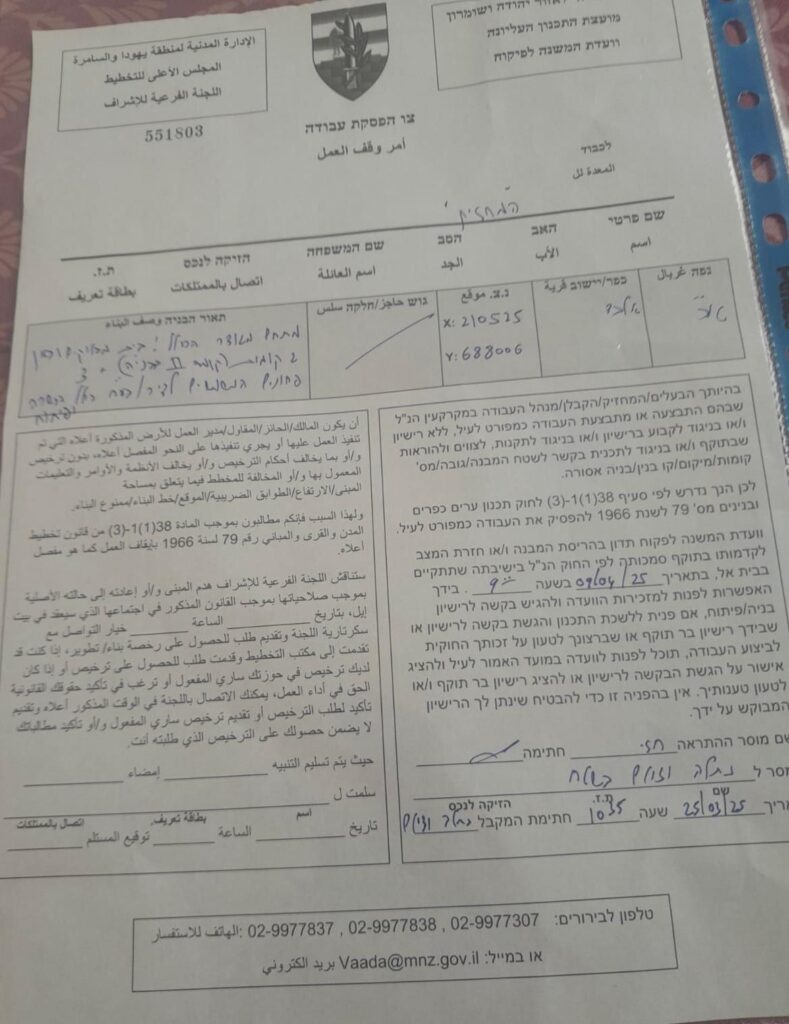 לאזור יהודה ושומרון
מועצת התכנון העליונה
וועדת המשנה לפיקוח
الإدارة المدنية لمنطقة يهودا والسامرة
المجلس الأعلى للتخطيط
اللجنة الفرعية للإشراف
551803
צו הפסקת עבודה
أمر وقف العمل
לכבוד
המחזיק
שם פרטי האב הסב שם המשפחה הזיקה לנכס ת.ז.
اسم الأب الجد اسم العائلة اتصال بالممتلكات بطاقة تعريف
כפר/יישוב قرية נ.צ. מוקע גוש حاجز/חלקה سلس תאור הבניה وصف البناء
X: 210525
Y: 688006
בהיותך הבעלים/המחזיק/הקבלן/מנהל העבודה במקרקעין הנ"ל
שבהם התבצעה או מתבצעת העבודה כמפורט לעיל, ללא רישיון
או בניגוד לקבוע ברישיון ו/או בניגוד לתקנות, לצווים ולהוראות
שבתוקף ו/או בניגוד לתכנית בקשר לשטח המבנה/גובה/מס'
קומות/מיקום/קו בנין/בניה אסורה.
לכן הנך נדרש לפי סעיף 38(1)(1-3) לחוק תכנון ערים כפרים
ובנינים מס' 79 לשנת 1966 להפסיק את העבודה כמפורט לעיל.
וועדת המשנה לפקוח תדון בהריסת המבנה ו/או חזרת המצב
לקדמותו בתוקף סמכותה לפי החוק הנ"ל בישיבתה שתתקיים
בבית אל, בתאריך 09/04/25 בשעה . בידך
האפשרות לפנות למזכירות הוועדה ולהגיש בקשה לרישיון
בניה/פיתוח, אם פנית ללשכת התכנון והגשת בקשה לרישיון או
שבידך רישיון בר תוקף או שברצונך לטעון על זכותך החוקית
לביצוע העבודה, תוכל לפנות לוועדה במועד האמור לעיל ולהציג
אישור על הגשת הבקשה לרישיון או להציג רישיון בר תוקף ו/או
לטעון טענותיך. אין בהפניה זו כדי להבטיח שינתן לך הרישיון
המבוקש על ידך.
שם מוסר ההתראה חתימה
הזיקה לנכס ת.ז. שם
25/03/25 שעה 1035 חתימת המקבל
أن يكون المالك/الحائز/المقاول/مدير العمل للأرض المذكورة أعلاه التي تم
تنفيذ العمل عليها أو يجري تنفيذها على النحو المفصل أعلاه، بدون ترخيص
و/أو بما يخالف أحكام الترخيص و/أو يخالف الأنظمة والأوامر والتعليمات
المعمول بها و/أو المخالفة للمخطط فيما يتعلق بمساحة
المبنى/الارتفاع/الطوابق الضريبية/الموقع/خط البناء/ممنوع البناء.
ولهذا السبب فإنكم مطالبون بموجب المادة 38(1)(1-3) من قانون تخطيط
المدن والقرى والمباني رقم 79 لسنة 1966 بإيقاف العمل كما هو مفصل
أعلاه.
ستناقش اللجنة الفرعية للإشراف هدم المبنى و/أو إعادته إلى حالته الأصلية
بموجب صلاحياتها بموجب القانون المذكور في اجتماعها الذي سيعقد في بيت
إيل، بتاريخ الساعة خيار التواصل مع
سكرتارية اللجنة وتقديم طلب للحصول على رخصة بناء/ تطوير، إذا كنت قد
تقدمت إلى مكتب التخطيط وقدمت طلب للحصول على ترخيص أو إذا كان
لديك ترخيص في حوزتك ساري المفعول أو ترغب في تأكيد حقوقك القانونية
الحق في أداء العمل، يمكنك الاتصال باللجنة في الوقت المذكور أعلاه وتقديم
تأكيد لطلب الترخيص أو تقديم ترخيص ساري المفعول و/أو تأكيد مطالباتك
لا يضمن حصولك على الترخيص الذي طلبته أنت.
حيث يتم تسليم التنبيه إمضاء
سلمت ل
اسم بطاقة تعريف. اتصال بالممتلكات
تاريخ الساعة توقيع المستلم
טלפון לבירורים: 02-9977307 , 02-9977838 , 02-9977837 :الهاتف للاستفسار
או במייל: Vaada@mnz.gov.il بريد الكتروني